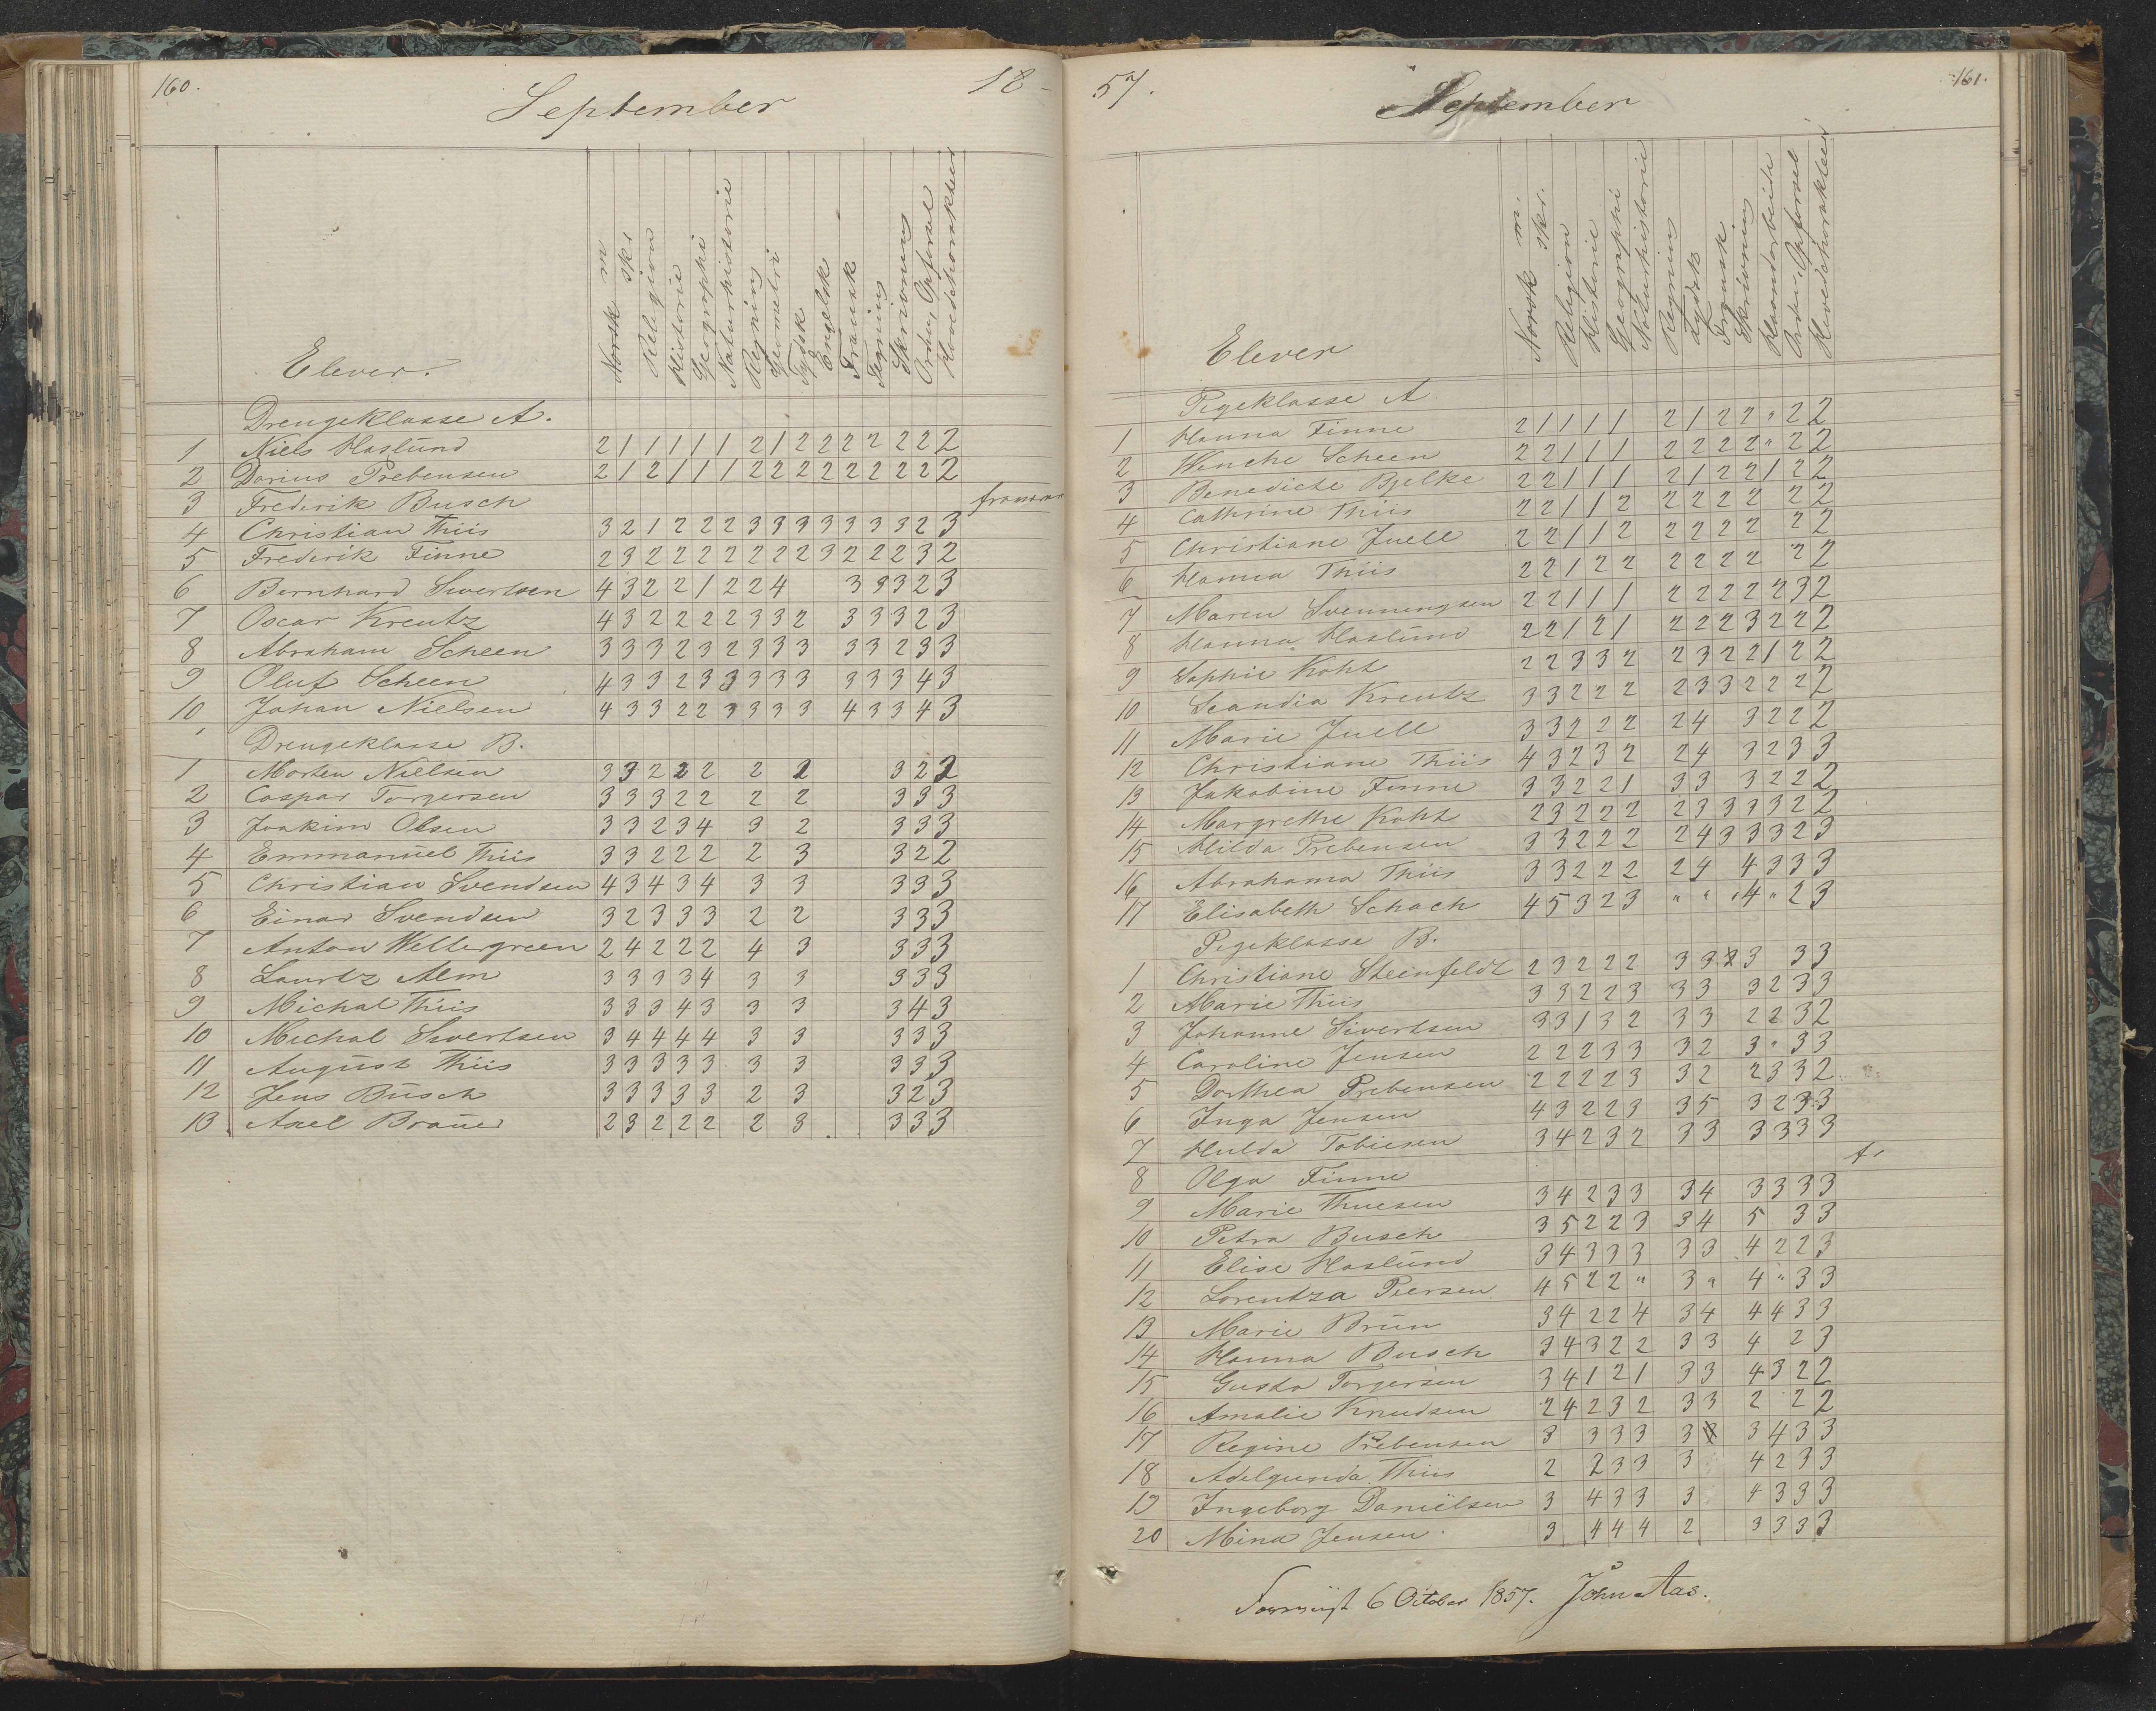 160.
18-
September
Elever.
Norsk m
skr
Religion
Historie
Geographi
Naturhistorie
Regning
Geometri
Tydsk
Engelsk
Fransk
Tegning
Skrivning
Orden, Opførsel
Hovedcharakteer
Drengeklasse A.
1 Niels Haslund 2 1 1 1 1 1 2 1 2 2 2 2 2 2 2 2
2 Darius Prebensen 2 1 2 1 1 1 2 2 2 2 2 2 2 2 2 2
3 Frederik Busch
4 Christian Thiis 3 2 1 2 2 2 3 3 3 3 3 3 3 2 3
5 Frederik Finne 2 3 2 2 2 2 2 2 2 3 2 2 2 3 2
6 Bernhard Sivertsen 4 3 2 2 1 2 2 4 3 3 3 2 3
7 Oscar Kreutz 4 3 2 2 2 2 3 3 2 3 3 3 2 3
8 Abraham Scheen 3 3 3 2 3 2 3 3 3 3 3 2 3 3
9 Oluf Scheen 4 3 3 2 3 3 3 3 3 3 3 3 4 3
10 Johan Nielsen 4 3 3 2 2 3 3 3 3 4 3 3 4 3
Drengeklasse B.
1 Morten Nielsen 3 3 2 2 2 2 2 3 2 2
2 Caspar Torgersen 3 3 3 2 2 2 2 3 3 3
3 Joakim Olsen 3 3 2 3 4 3 2 3 3 3
4 Emmanuel Thiis 3 3 2 2 2 2 3 3 2 2
5 Christian Svendsen 4 3 4 3 4 3 3 3 3 3
6 Einar Svendsen 3 2 3 3 3 2 2 3 3 3
7 Anton Wettergreen 2 4 2 2 2 4 3 3 3 3
8 Lauritz Alm 3 3 3 3 4 3 3 3 3 3
9 Michal Thiis 3 3 3 4 3 3 3 3 4 3
10 Michal Sivertsen 3 4 4 4 4 3 3 3 3 3
11 August Thiis 3 3 3 3 3 3 3 3 3 3
12 Jens Busch 3 3 3 3 3 2 3 3 2 3
13 Axel Brauer 2 3 2 2 2 2 3 3 3 3
57.
161.
September
Elever
Norsk m.
skr.
Religion
Historie
Geographi
Naturhistorie
Regning
Tydsk
Fransk
Skrivning
Haandarbeide
Orden, Opførsel
Hovedcharakteer
Pigeklasse A
1 Hanna Finne 2 1 1 1 1 2 1 2 2 " 2 2
2 Wenche Scheen 2 2 1 1 1 2 2 2 2 " 2 2
3 Benedicte Bjelke 2 2 1 1 1 2 1 2 2 1 2 2
4 Cathrine Thiis 2 2 1 1 2 2 2 2 2 2 2
5 Christiane Juell 2 2 1 1 2 2 2 2 2 2 2
6 Hanna Thiis 2 2 1 2 2 2 2 2 2 2 2
7 Maren Svenningsen 2 2 1 1 1 2 2 2 2 2 3 2
8 Hanna Haslund 2 2 1 2 1 2 2 2 3 2 2 2
9 Sophie Koht 2 2 3 3 2 2 3 2 2 1 2 2
10 Scandia Kreutz 3 3 2 2 2 2 3 3 2 2 2 2
11 Marie Juell 3 3 2 2 2 2 4 3 2 2 2
12 Christiane Thiis 4 3 2 3 2 2 4 3 2 3 3
13 Jakobine Finne 3 3 2 2 1 3 3 3 2 2 2
14 Margrethe Koht 2 3 2 2 2 2 3 3 3 3 2 2
15 Hilda Prebensen 3 3 2 2 2 2 4 3 3 3 2 3
16 Abrahama Thiis 3 3 2 2 2 2 4 4 3 3 3
17 Elisabeth Schach 4 5 3 2 3 " " " 4 " 2 3
Pigeklasse B.
1 Christiane Steinfeldt 2 3 2 2 2 3 3 3 3 3
2 Marie Thiis 3 3 2 2 3 3 3 3 2 3 3
3 Johanne Sivertsen 3 3 1 3 2 3 3 2 2 3 2
4 Caroline Jensen 2 2 2 3 3 3 2 3 " 3 3
5 Dorthea Prebensen 2 2 2 2 3 3 2 2 3 3 2
6 Inga Jensen 4 3 2 2 3 3 5 3 2 3 3
7 Hulda Tobiesen 3 4 2 3 2 3 3 3 3 3 3
8 Olga Finne
9 Marie Thuesen 3 4 2 3 3 3 4 3 3 3 3
10 Petra Busch 3 5 2 2 3 3 4 5 3 3
11 Elise Haslund 3 4 3 3 3 3 3 4 2 2 3
12 Lorentza Peersen 4 5 2 2 " 3 " 4 " 3 3
13 Marie Brun 3 4 2 2 4 3 4 4 4 3 3
14 Hanna Busch 3 4 3 2 2 3 3 4 2 3
15 Gusta Torgersen 3 4 1 2 1 3 3 4 3 2 2
16 Amalie Knudsen 2 4 2 3 2 3 3 2 2 2
17 Regine Prebensen 3 3 3 3 3 3 4 3 3
18 Adelgunda Thiis 2 2 3 3 3 4 2 3 3
19 Ingeborg Danielsen 3 4 3 3 3 4 3 3 3
20 Mina Jensen 3 4 4 4 2 3 3 3 3
6 October 1857. John Aas.